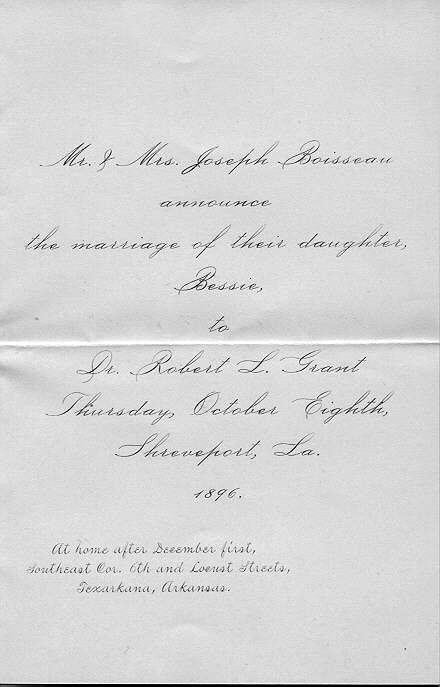 Mr. & Mrs. Joseph Boisseau
announce
the marriage of their daughter,
Bessie,
to
Dr. Robert L. Grant
Thursday, October Eighth,
Shreveport, La.
1896.
At home after December first,
Southeast Cor. 6th and Locust Streets,
Texarkana, Arkansas.